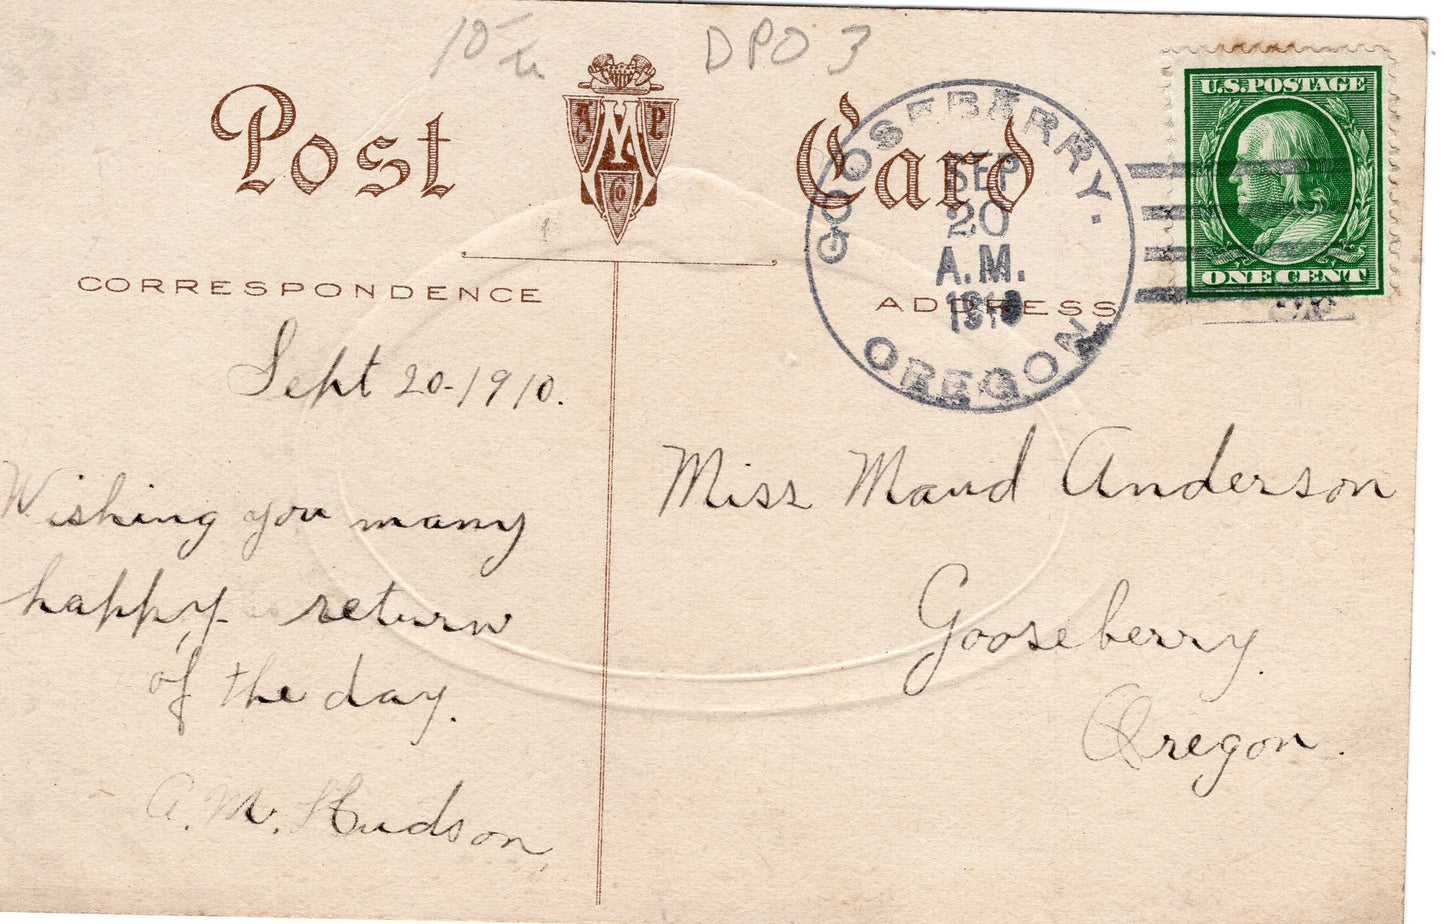 10-
DPO 3
Post Card
A M P
Co
GOOSEBERRY.
SEP
20
A.M.
1910
OREGON
U.S. POSTAGE
ONE CENT
CORRESPONDENCE
ADDRESS
Sept 20-1910.
Wishing you many
happy return
of the day.
A. M. Hudson
Miss Maud Anderson
Gooseberry.
Oregon.